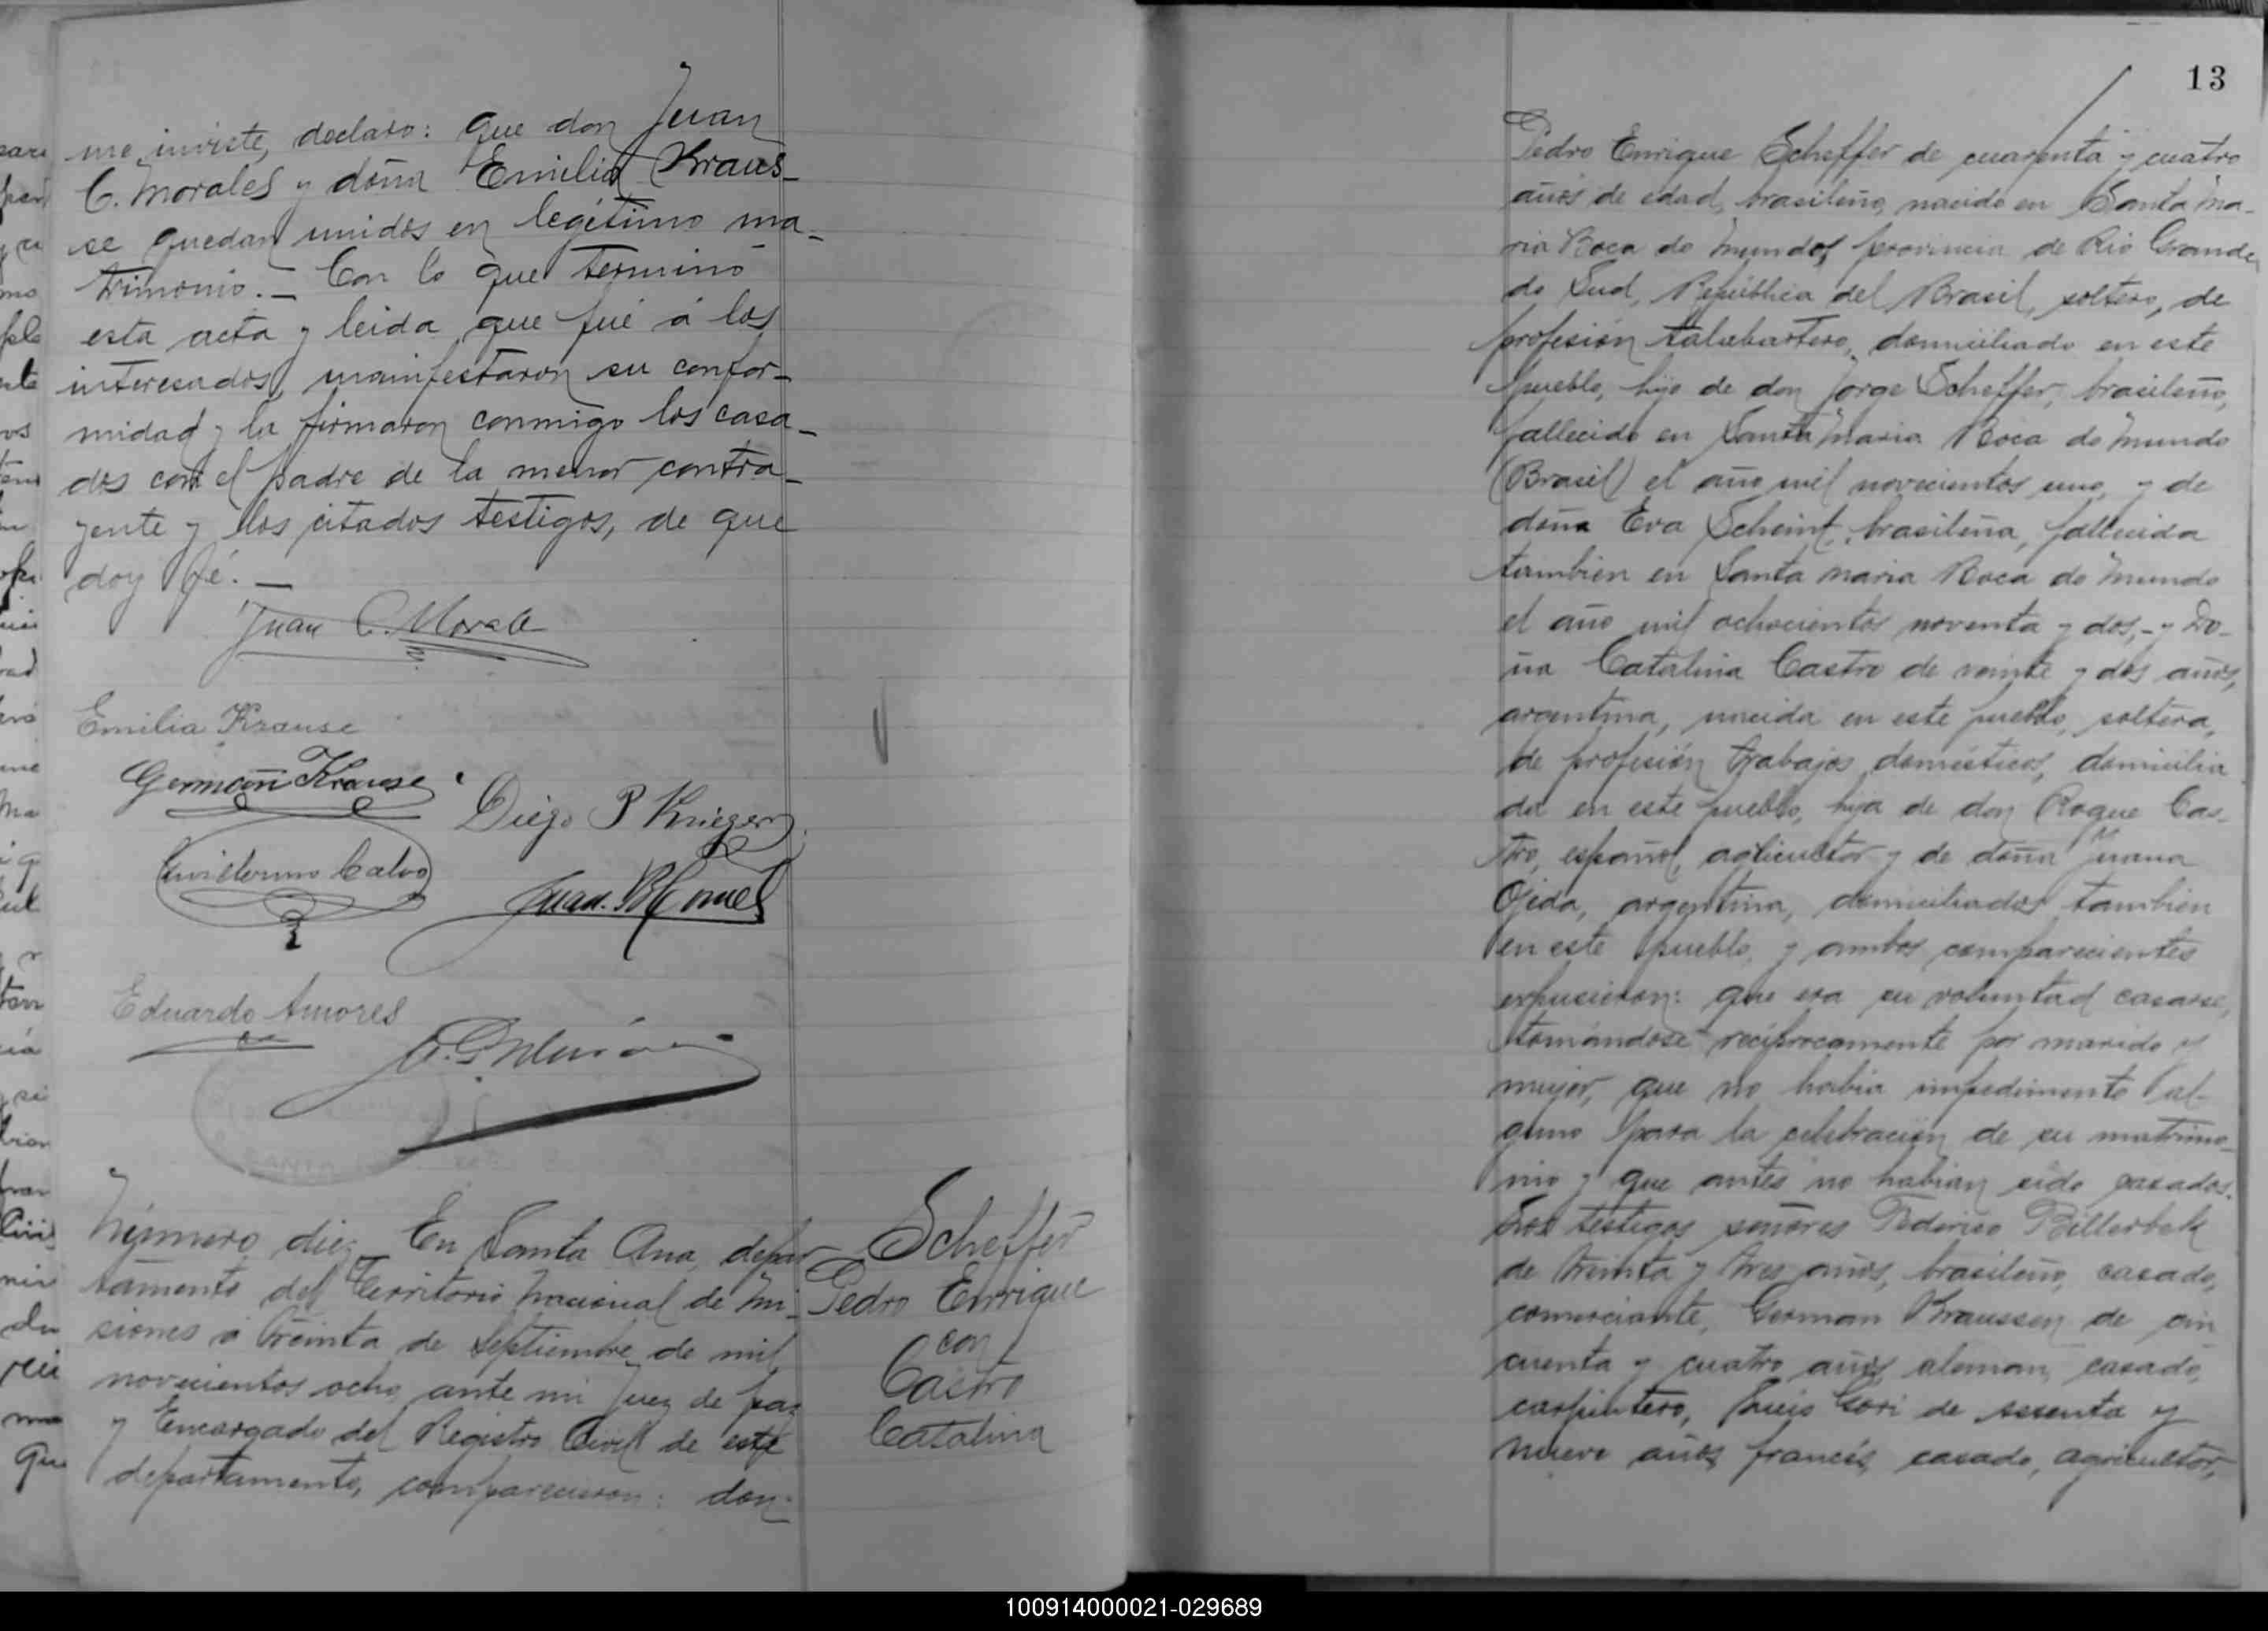 me inviste, declaro: que don Juan
C. Morales y doña Emilia Kraus_
se quedan unidos en legítimo ma_
trimonio._ Con lo que terminó
esta acta y leida que fué á los
interesados, manifestaron su confor_
midad y la firmaron conmigo los casa_
dos con el padre de la menor contra_
yente y los citados testigos, de que
doy fé._
Juan C. Morale
Emilia Krause
Germán Krause
Diego P Krieger
Guillermo Calvo
Juan B
Eduardo Amores
Número diez_ En Santa Ana, depar_
tamento del Territorio Nacional de Mi_
siones á treinta de Septiembre de mil
novecientos ocho, ante mi Juez de paz
y Encargado del Registro Civil de este
departamento, comparecieron: don
Scheffer
Pedro Enrique
con
Castro
Catalina
13
Pedro Enrique Scheffer de cuarenta y cuatro
años de edad, brasileño, nacido en Santa Ma_
ria Boca do Mundo, provincia de Rio Grande
do Sud, República del Brasil, soltero, de
profesión talabartero, domiciliado en este
pueblo, hijo de don Jorge Scheffer, brasileño,
fallecido en Santa Maria Boca do Mundo
(Brasil) el año mil novecientos uno, y de
doña Eva Scheint, brasileña, fallecida
tambien en Santa Maria Boca do Mundo
el año mil ochocientos noventa y dos,- y Do_
ña Catalina Castro de veinte y dos años,
argentina, nacida en este pueblo, soltera,
de profesión trabajos domésticos, domicilia
da en este pueblo, hija de don Roque Cas_
tro, español, agricultor y de doña Juana
Ojeda, argentina, domiciliados tambien
en este pueblo, y ambos comparecientes
expusieron: que era su voluntad casarse,
tomándose recíprocamente por marido y
mujer, que no habia impedimento al_
guno para la celebración de su matrimo_
nio y que antes no habian sido casados.
Los testigos señores Federico Billerbek
de treinta y tres años, brasileño, casado,
comerciante, German Kraussen de cin
cuenta y cuatro años, aleman, casado,
carpintero, Luis Gori de sesenta y
nueve años, francés, casado, agricultor,
100914000021-029689